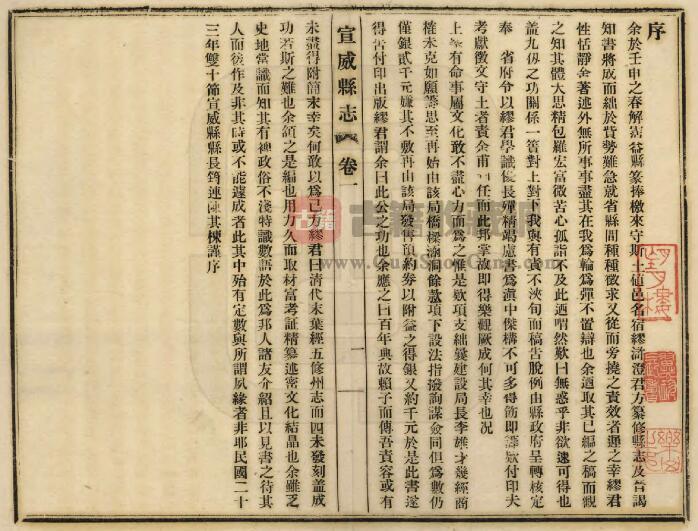 序
余於壬申之春解霑益縣篆捧檄來守斯土値邑名宿繆澥澄君方纂修縣志及晉謁
知書將成而絀於貲勢難急就省縣間種種徵求又從而旁撓之責效者遲之幸繆君
性恬靜舍著述外無所事事盡其在我爲輪爲彈不置辯也余迺取其已編之稿而觀
之知其體大思精包羅宏富微苦心孤詣不及此迺喟然歎曰無惑乎非欲速可得也
蓋九仭之功關係一簣對上對下我與有責不浹旬而稿吿脫例由縣政府呈轉核定
奉 省府令以繆君學識優長殫精竭慮書爲滇中傑構不可多得飭即籌欵付印夫
考獻徵文守土者責余甫 任而此邦掌故即得樂觀厥成何其幸也況
上峯有命事屬文化敢不盡心力而爲之惟是欵項支絀曩建設局長李雄才幾經商
榷未克如願籌思至再始由該局橋樑涵洞餘欵項下設法指撥詢謀僉同但爲數仍
僅銀貳千元嫌其不敷再由該局發售預約券以附益之得銀又約千元於是此書遂
得吿付印出版繆君謂余曰此公之功也余應之曰百年典故賴子而傳吾責容或有
宣威縣志 卷一
一
未盡得附簡末幸矣何敢以爲已力繆君曰清代末葉經五修州志而四未發刻蓋成
功若斯之難也余頷之是編也用力久而取材富考証精纂述密文化結晶也余雖乏
史地常識而知其有裨政俗不淺特識數語於此爲邦人諸友介紹且以見書之待其
人而後作及非其時或不能遽成者此其中殆有定數與所謂夙緣者非耶民國二十
三年雙十節宣威縣縣長筠連陳其棟謹序
古籍
www.GuJiShuGang.com